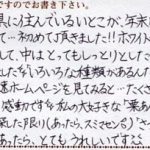 ですのでお書き下さい。
県に住んでいるいとこが、年末に
て…初めて頂きました!!ホワイト
して、中はとてもしっとりとした
した。いろいろな種類があるんだ
速ホームページを見てみると…たくさ
感動です。私の大好きな"栗あん
張した限り(あったら、スミマセン)"さ
あったら、とてもうれしいです